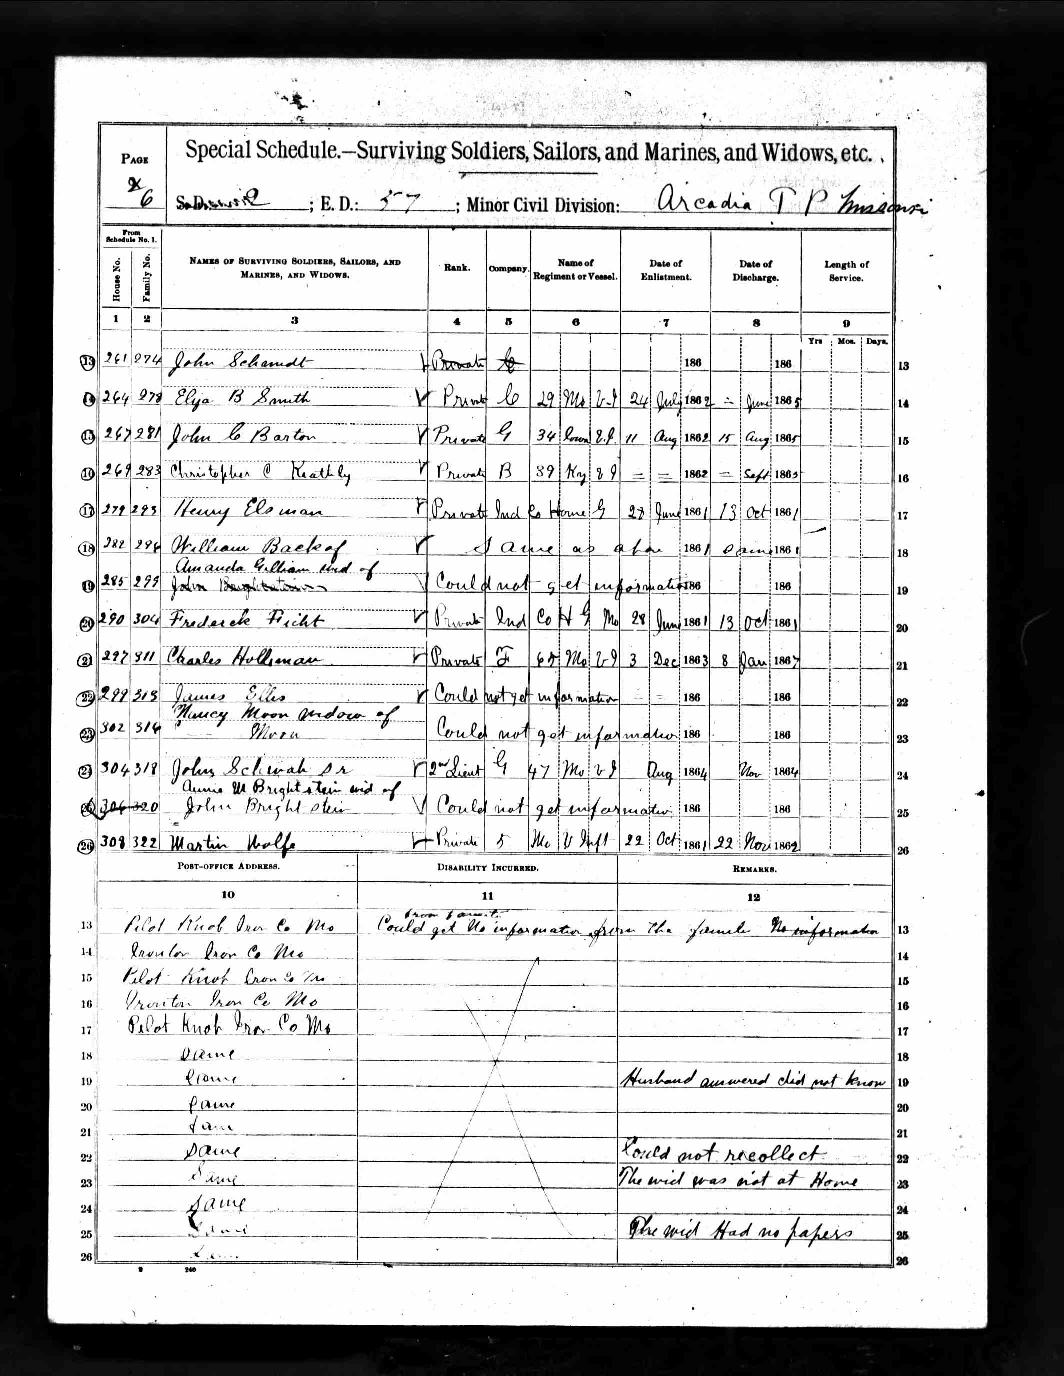 PAGE
2
6
Special Schedule.—Surviving Soldiers, Sailors, and Marines, and Widows, etc.
; E. D.: 57 ; Minor Civil Division: Arcadia T P Missouri
From Schedule No. 1.
House No. Family No. NAMES OF SURVIVING SOLDIERS, SAILORS, AND MARINES, AND WIDOWS. Rank. Company. Name of Regiment or Vessel. Date of Enlistment. Date of Discharge. Length of Service.
1 2 3 4 5 6 7 8 9
Yrs Mos. Days.
13 261 274 John Schamdt Private C 186 186 13
14 264 278 Elija B Smith Privat C 29 Mo V I 24 July 1862 – June 1865 14
15 267 281 John C Barton Private G 34 Iowa V.I. 11 Aug 1862 15 Aug 1865 15
16 269 283 Christopher C Keathly Private B 39 Ky V I – – 1862 – Sept 1865 16
17 279 293 Henry Elsman Private Ind Co Home G 28 June 1861 13 Oct 1861 17
18 282 296 William Backof Same as above 1861 Same 1861 18
Amanda Gilliam wid of
19 285 299 John Could not get information 186 186 19
20 290 304 Frederick Ficht Private Ind Co H G Mo 28 June 1861 13 Oct 1861 20
21 297 311 Charles Holliman Private F 68 Mo V I 3 Dec 1863 8 Jan 1867 21
22 299 313 James Ellis Could not get information – – 186 186 22
Nancy Moon widow of
23 302 316 Moon Could not get information 186 186 23
24 304 318 John Schwab Sr 2nd Lieut G 47 Mo V I Aug 1864 Nov 1864 24
Annie M Brightstein wid of
25 306 320 John Brightstein Could not get information 186 186 25
26 308 322 Martin Wolfe Private 5 Mo V Inft 22 Oct 1861 22 Nov 1862 26
POST-OFFICE ADDRESS. DISABILITY INCURRED. REMARKS.
10 11 12
13 Pilot Knob Iron Co Mo Could get No information from the famile No information 13
14 Ironton Iron Co Mo 14
15 Pilot Knob Iron Co Mo 15
16 Ironton Iron Co Mo 16
17 Pilot Knob Iron Co Mo 17
18 Same 18
19 Same Husband answered did not know 19
20 Same 20
21 Same 21
22 Same Could not recollect 22
23 Same The wid was not at Home 23
24 Same 24
25 Same The wid Had no papers 25
26 26
240